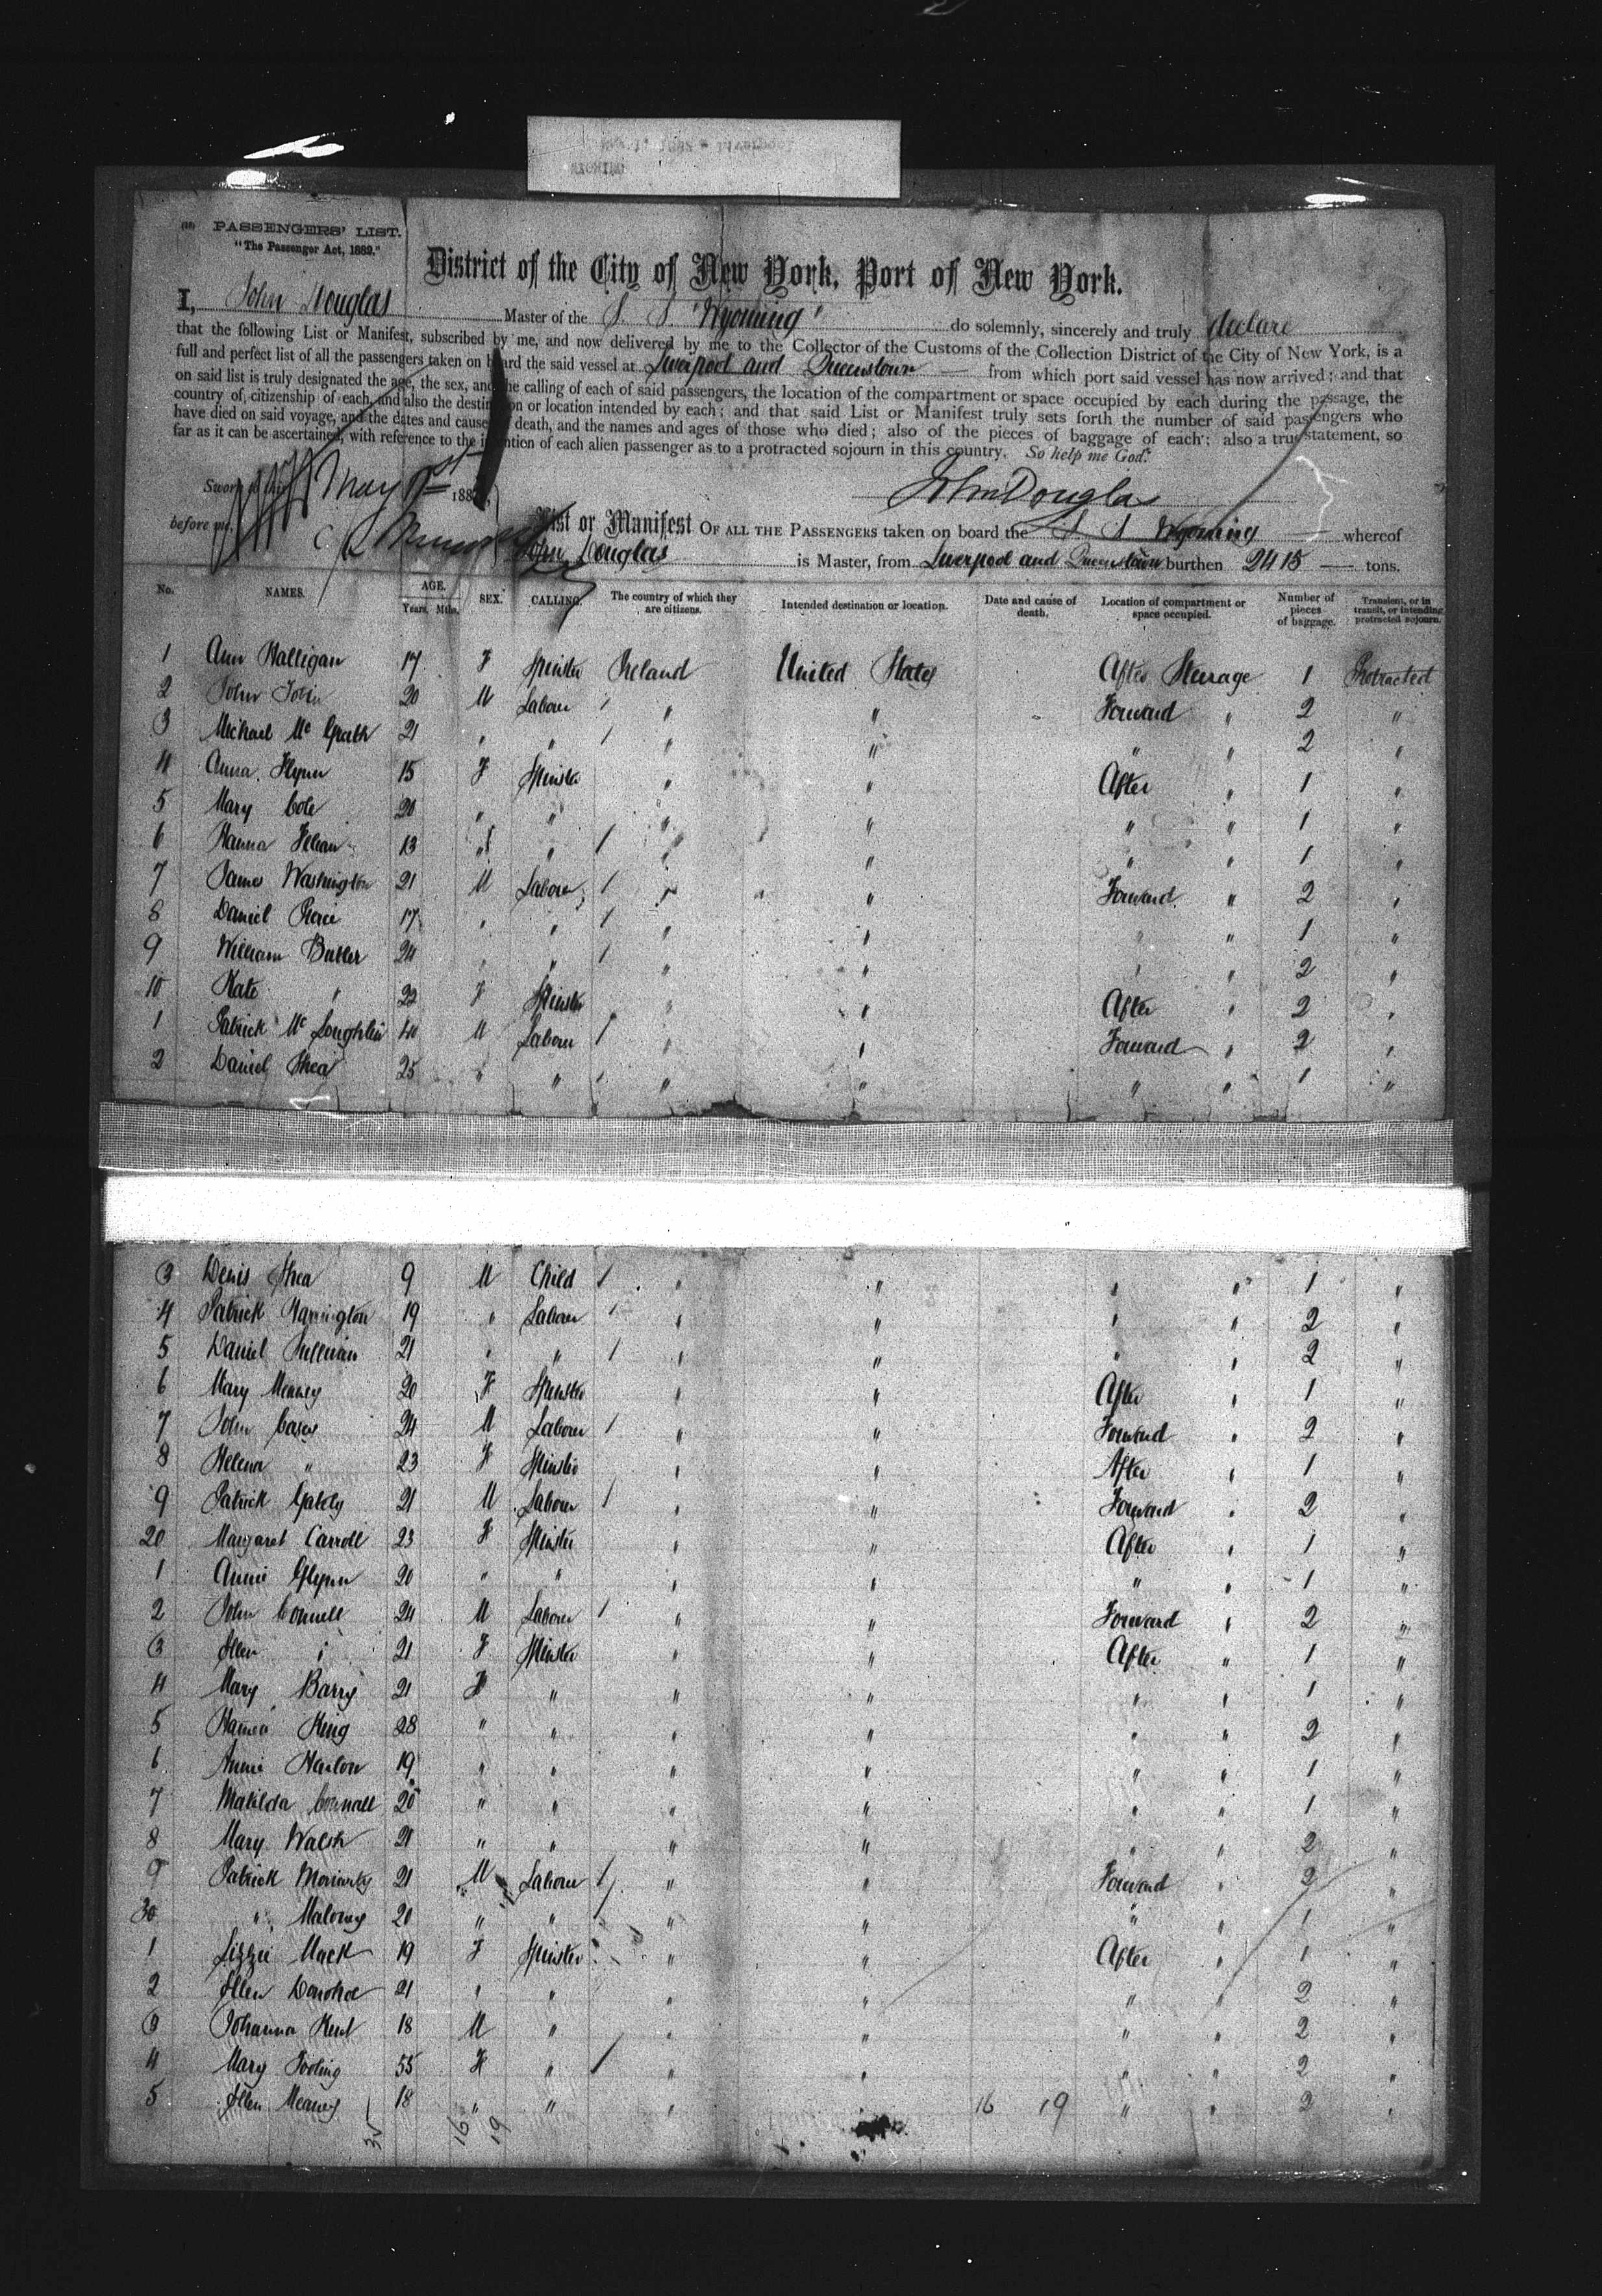 PASSENGERS' LIST.
"The Passenger Act, 1882."
District of the City of New York, Port of New York.
I, John Douglas Master of the S. S "Wyoming" do solemnly, sincerely and truly declare
that the following List or Manifest, subscribed by me, and now delivered by me to the Collector of the Customs of the Collection District of the City of New York, is a
full and perfect list of all the passengers taken on board the said vessel at Liverpool and Queenstown from which port said vessel has now arrived; and that
on said list is truly designated the age, the sex, and the calling of each of said passengers, the location of the compartment or space occupied by each during the passage, the
country of citizenship of each, and also the destination or location intended by each; and that said List or Manifest truly sets forth the number of said passengers who
have died on said voyage, and the dates and cause of death, and the names and ages of those who died; also of the pieces of baggage of each; also a true statement, so
far as it can be ascertained, with reference to the intention of each alien passenger as to a protracted sojourn in this country. So help me God.
Sworn to this May 1st 188
John Douglas
before me,
List or Manifest OF ALL THE PASSENGERS taken on board the S. S Wyoming whereof
John Douglas is Master, from Liverpool and Queenstown burthen 2415 tons.
No. NAMES. AGE. Years. Mths. SEX. CALLING. The country of which they are citizens. Intended destination or location. Date and cause of death. Location of compartment or space occupied. Number of pieces of baggage. Transient, or in transit, or intending protracted sojourn.
1 Ann Halligan 17 F Spinster Ireland United States After Steerage 1 Protracted
2 John Tobin 20 M Labour 1 " " Forward " 2 "
3 Michael Mc Grath 21 " " 1 " " " " 2 "
4 Anna Flynn 15 F Spinster " " After " 1 "
5 Mary Cole 20 " " " " " " 1 "
6 Hanna 13 " " 1 " " " " 1 "
7 James Washington 21 M Labour 1 " " Forward " 2 "
8 Daniel Pierce 17 " " 1 " " " " 1 "
9 William Butler 24 " " 1 " " " " 2 "
10 Kate " 22 F Spinster " " After " 2 "
1 Patrick Mc Loughlin 40 M Labour 1 " " Forward " 2 "
2 Daniel Shea 25 " " 1 " " " " 1 "
3 Denis Shea 9 M Child 1 " " " " 1 "
4 Patrick Harrington 19 " Labour 1 " " " " 2 "
5 Daniel Sullivan 21 " " 1 " " " " 2 "
6 Mary Meaney 20 F Spinster " " After " 1 "
7 John Casey 24 M Labour 1 " " Forward " 2 "
8 Helena " 23 F Spinster " " After " 1 "
9 Patrick Gately 21 M Labour 1 " " Forward " 2 "
20 Margaret Carroll 23 F Spinster " " After " 1 "
1 Annie Glynn 20 " " " " " " 1 "
2 John Connell 24 M Labour 1 " " Forward " 2 "
3 Ellen " 21 F Spinster " " After " 1 "
4 Mary Barry 21 F " " " " " 1 "
5 Hanna King 28 " " " " " " 2 "
6 Annie Hanlon 19 " " " " " " 1 "
7 Matilda Connall 20 " " " " " " 1 "
8 Mary Walsh 21 " " " " " " 2 "
9 Patrick Moriarty 21 M Labour 1 " " Forward " 2 "
30 " Maloney 20 " " 1 " " " " 1 "
1 Lizzie Mack 19 F Spinster " " After " 1 "
2 Ellen Donohoe 21 " " " " " " 2 "
3 Johanna Kent 18 M " " " " " 2 "
4 Mary Tooling 55 F " 1 " " " " 2 "
5 Ellen Meaney 18 " " " " 16 19 " " 2 "
16 19